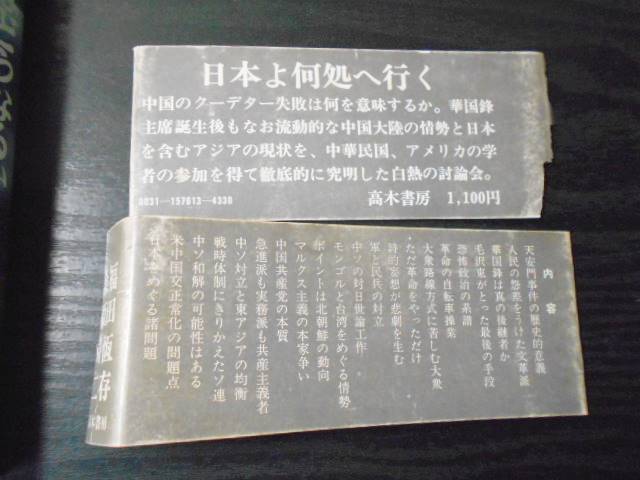 日本よ何処へ行く
中国のクーデター失敗は何を意味するか。華国鋒
主席誕生後もなお流動的な中国大陸の情勢と日本
を含むアジアの現状を、中華民国、アメリカの学
者の参加を得て徹底的に究明した白熱の討論会。
0031―157613―4330
高木書房 1,100円
内容
天安門事件の歴史的意義
人民の怨差をうけた文革派
華国鋒は真の後継者か
毛沢東がとった最後の手段
恐怖政治の系譜
革命の自転車操業
大衆路線方式に苦しむ大衆
ただ革命をやっただけ
詩的妄想が悲劇を生む
軍と民兵の対立
中ソの対日世論工作
モンゴルと台湾をめぐる情勢
ポイントは北朝鮮の動向
マルクス主義の本家争い
中国共産党の本質
急進派も実務派も共産主義者
中ソ対立と東アジアの均衡
戦時体制にきりかえたソ連
中ソ和解の可能性はある
米中国交正常化の問題点
日本をめぐる諸問題
福田恆存